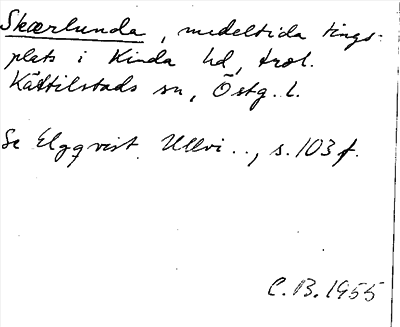 Skærlunda, medeltida tings-
plats i Kinda hd, trol.
Kättilstads sn, Östg. l.
Se Elgqvist Ullvi.., s. 103 f.
C. B. 1955